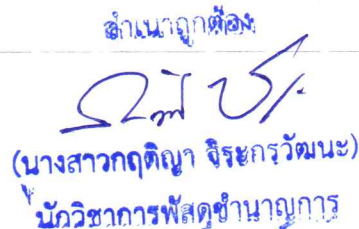 สำเนาถูกต้อง
(นางสาวกฤติญา จิระกรวัฒนะ)
นักวิชาการพัสดุชำนาญการ